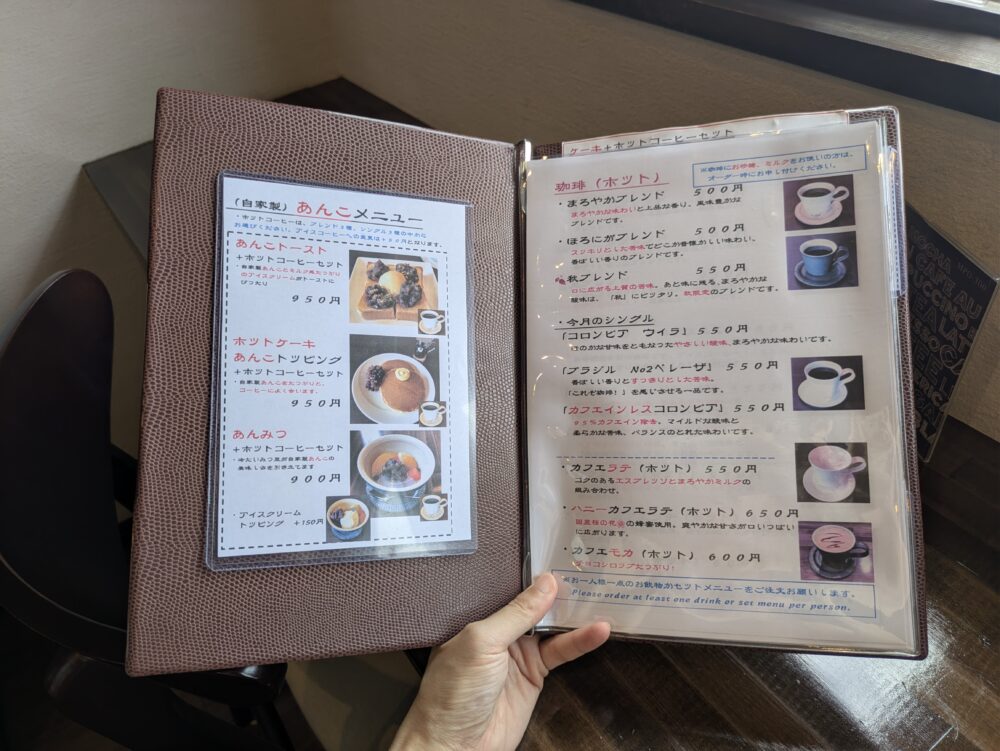 (自家製) あんこメニュー
・ホットコーヒーは、ブレンド3種、シングル3種の中から
お選びください。アイスコーヒーへの変更は+50円となります。
あんこトースト
+ホットコーヒーセット
・自家製あんことミルク風たっぷり
のアイスクリームがトーストに
ぴったり
950円
ホットケーキ
あんこトッピング
+ホットコーヒーセット
・自家製あんこをたっぷりと、
コーヒーによく合います。
950円
あんみつ
+ホットコーヒーセット
・冷たいみつ豆が自家製あんこの
美味しさを引き立てます
900円
・アイスクリーム
トッピング +150円
ケーキ+ホットコーヒーセット
※珈琲にお砂糖、ミルクをお使いの方は、
オーダー時にお申し付けください。
珈琲(ホット)
・まろやかブレンド 500円
まろやかな味わいと上品な香り、風味豊かな
ブレンドです。
・ほろにがブレンド 500円
スッキリとした苦味でどこか昔懐かしい味わい、
香ばしい香りのブレンドです。
秋ブレンド 550円
口に広がる上質の苦味。あと味に残る、まろやかな
酸味は、「秋」にピッタリ。秋限定のブレンドです。
・今月のシングル
「コロンビア ウイラ」550円
ほのかな甘味をともなったやさしい酸味、まろやかな味わいです。
「ブラジル No2ペレーザ」550円
香ばしい香りとすっきりとした苦味。
「これぞ珈琲!」を思いさせる一品です。
「カフェインレスコロンビア」550円
95%カフェイン除去。マイルドな酸味と
柔らかな苦味、バランスのとれた味わいです。
・カフェラテ(ホット) 550円
コクのあるエスプレッソとまろやかミルクの
組み合わせ。
・ハニーカフェラテ(ホット) 650円
国産桜の花の蜂蜜使用。爽やかな甘さが口いっぱい
に広がります。
・カフェモカ(ホット) 600円
チョコシロップたっぷり!
※お一人様一点のお飲物かセットメニューをご注文お願いします。
Please order at least one drink or set menu per person.